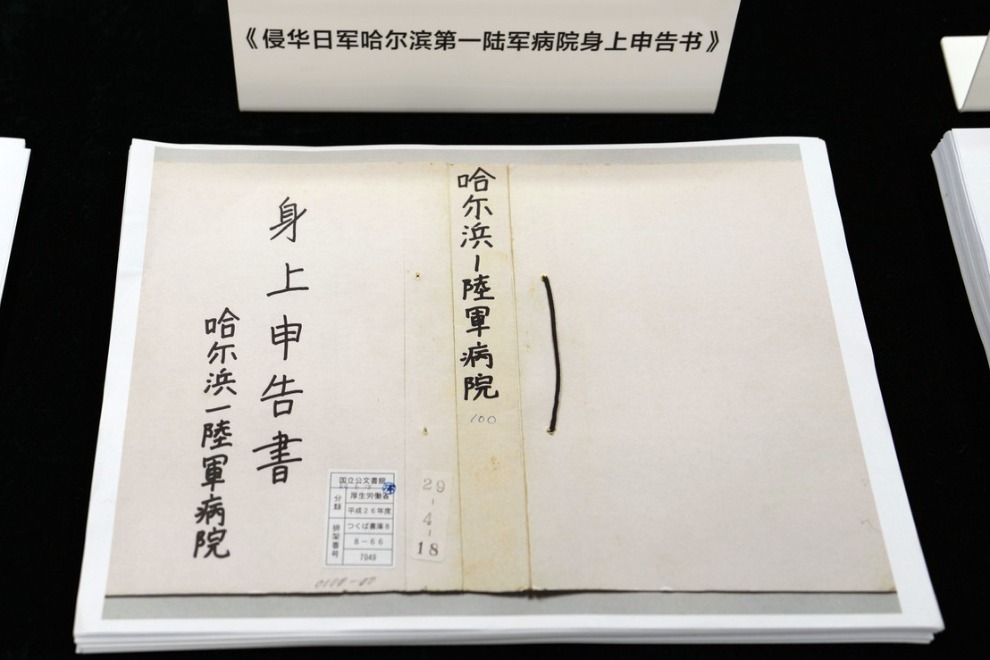 《侵华日军哈尔滨第一陆军病院身上申告书》
身上申告書
哈尔浜一陸軍病院
哈尔浜一陸軍病院
100
国立公文書館
分類
厚生労働省
平成26年度
つくば書庫8
排架番号
8-66
7949
29
-
4
-
18